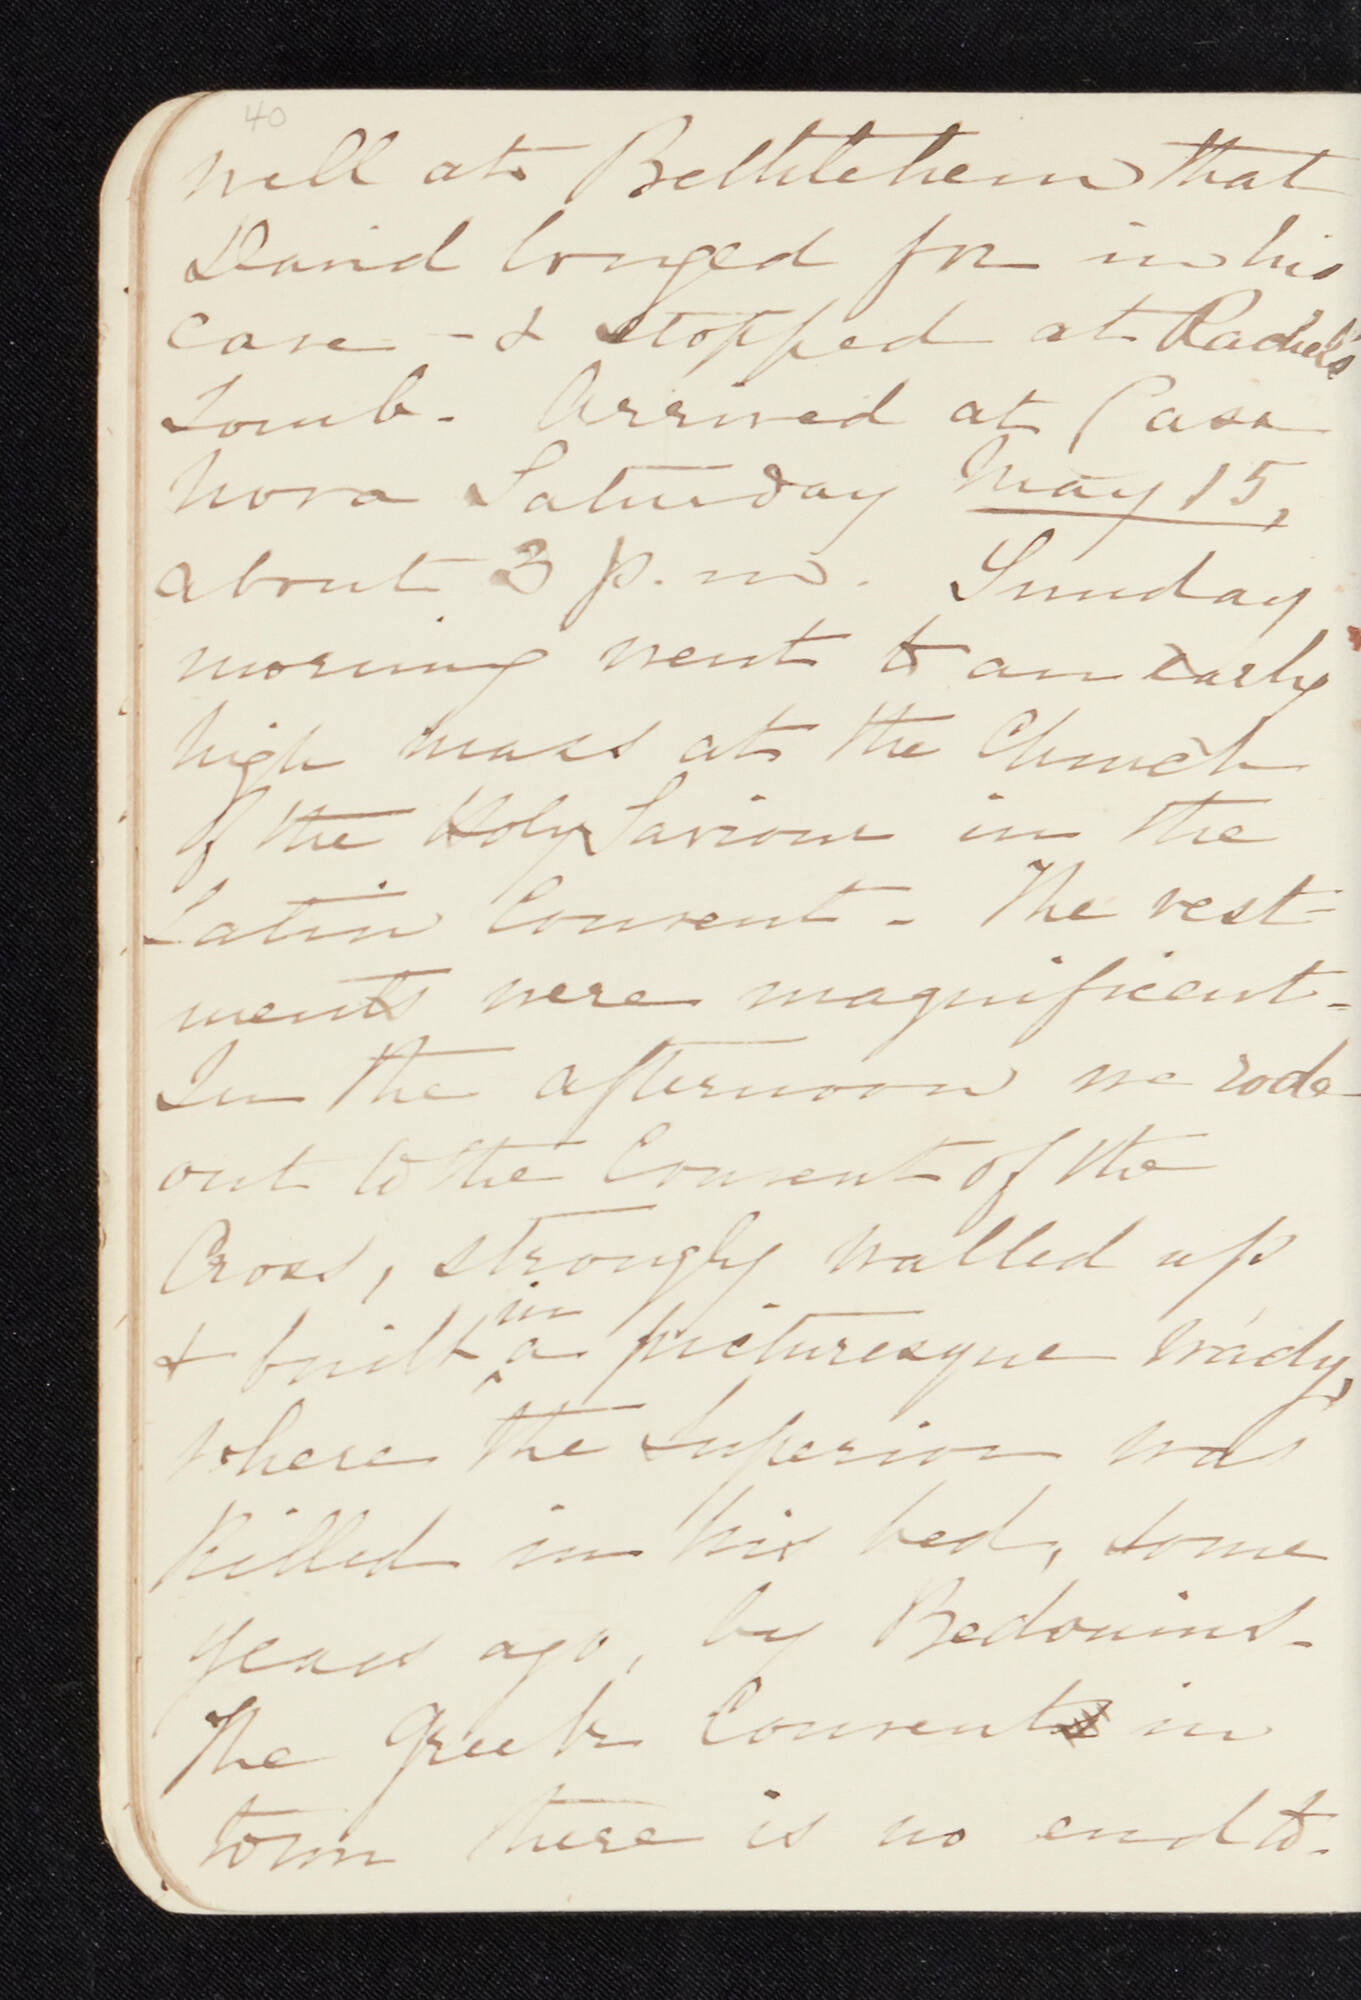 40
well at Bethlehem that
David longed for in his
cave - & stopped at Rachel's
Tomb. Arrived at Casa
Nova Saturday May 15,
about 3 p.m. Sunday
morning went to an early
high mass at the Church
of the Holy Saviour in the
Latin Convent. The vest-
ments were magnificent.
In the afternoon we rode
out to the Convent of the
Cross, strongly walled up
& built in a picturesque Wády,
where the Superior was
killed in his bed, some
years ago, by Bedouins.
The Greek Convents in
town there is no end to.